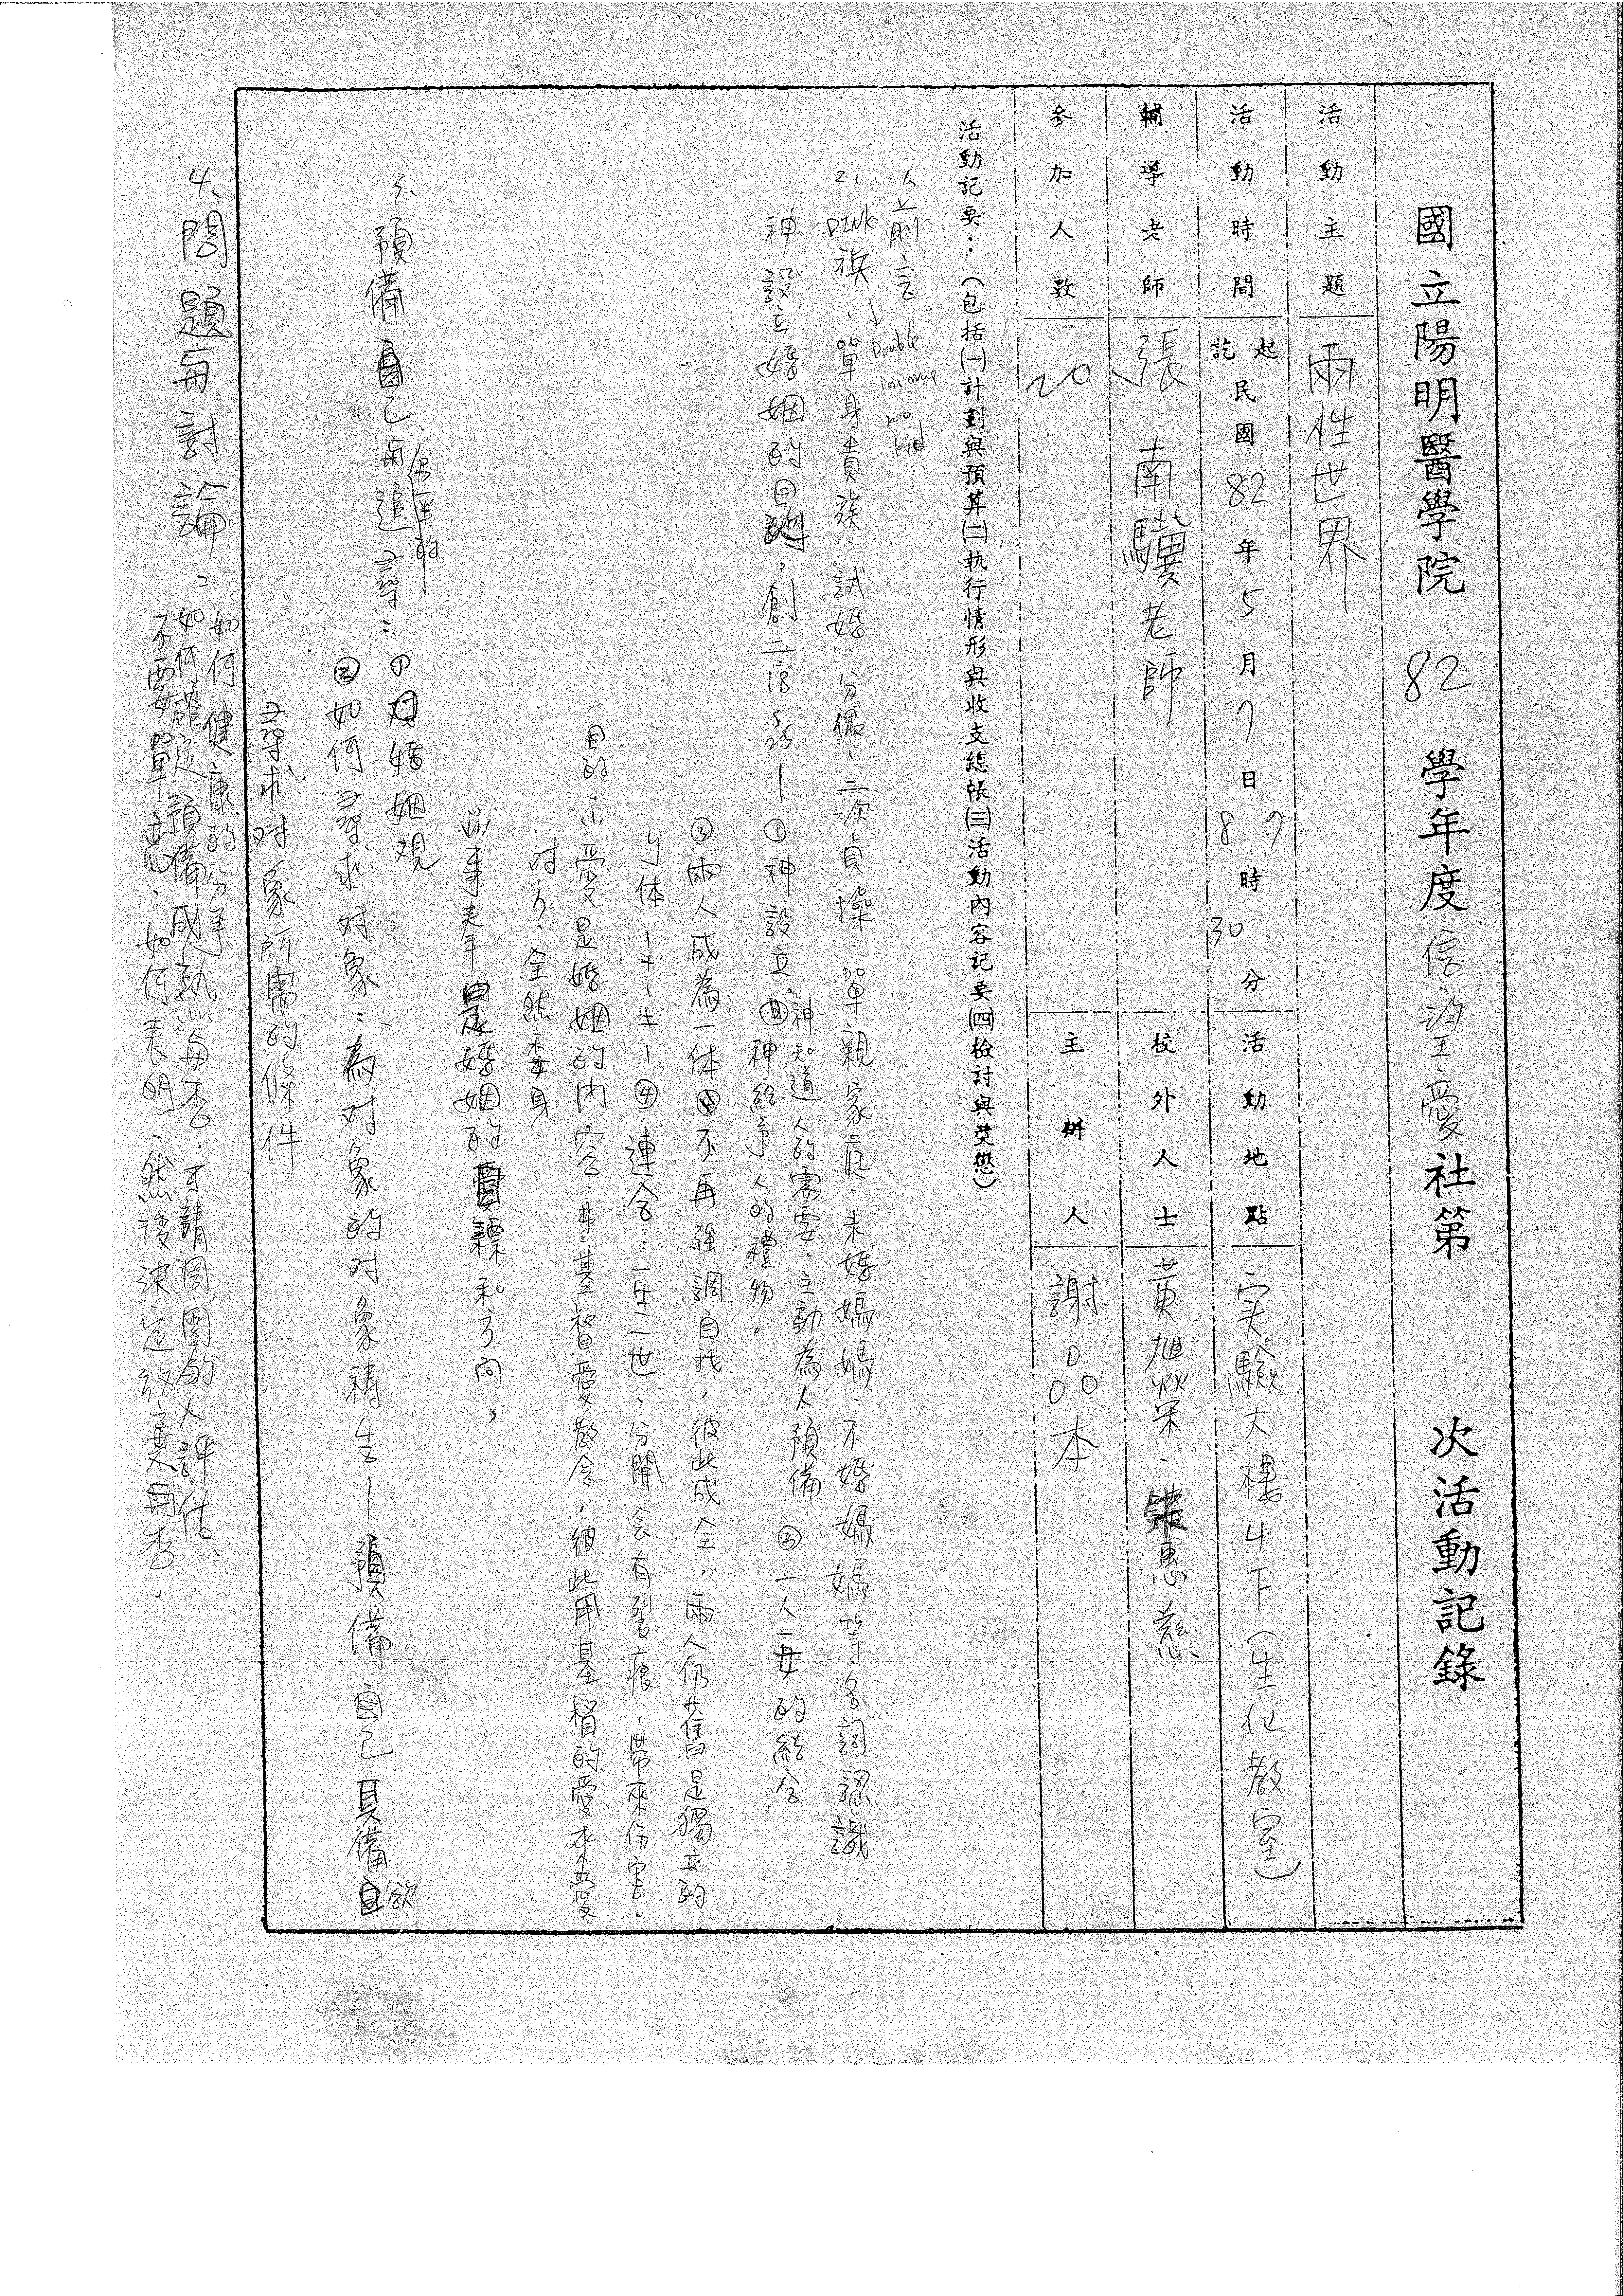 國立陽明醫學院 82 學年度信望愛社第 次活動記錄
活動主題 兩性世界
活動時間 起訖 民國82年5月7日 時 30 分
活動地點 实驗大樓4下(生化教室)
輔導老師 張南驥老師
校外人士 黃旭榮、惠慈
參加人數 20
主辦人 謝 本
活動記要:(包括(一)計劃與預算(二)執行情形與收支總帳(三)活動內容記要(四)檢討與獎懲)
1、前言
Double income no kid
2、DINK族、單身貴族、試婚、分偶、二次貞操、單親家庭、未婚媽媽、不婚媽媽等名詞認識
神設立婚姻的目的,創二18~25—①神設立,神知道人的需要、主動為人預備 ②一人一女的結合
神給予人的禮物。
③兩人成為一体 不再強調自我,彼此成全,兩人仍舊是獨立的
个体 1+1=1 ④連合:一生一世,分開会有裂痕,帶來伤害。
目的:(1)愛是婚姻的內容,基督愛教会,彼此用基督的愛來愛
对方,全然委身.
(2)事奉是婚姻的 和方向,
3、預備自己與追尋: ① 婚姻观
②如何尋求对象:為对象的对象祷告—預備自己具備欲
尋求对象所需的條件
4、問題與討論:如何健康的分手
如何確定預備成熟與否,可請周圍的人評估、
不要單 ,如何表明,然後決定放棄與否。